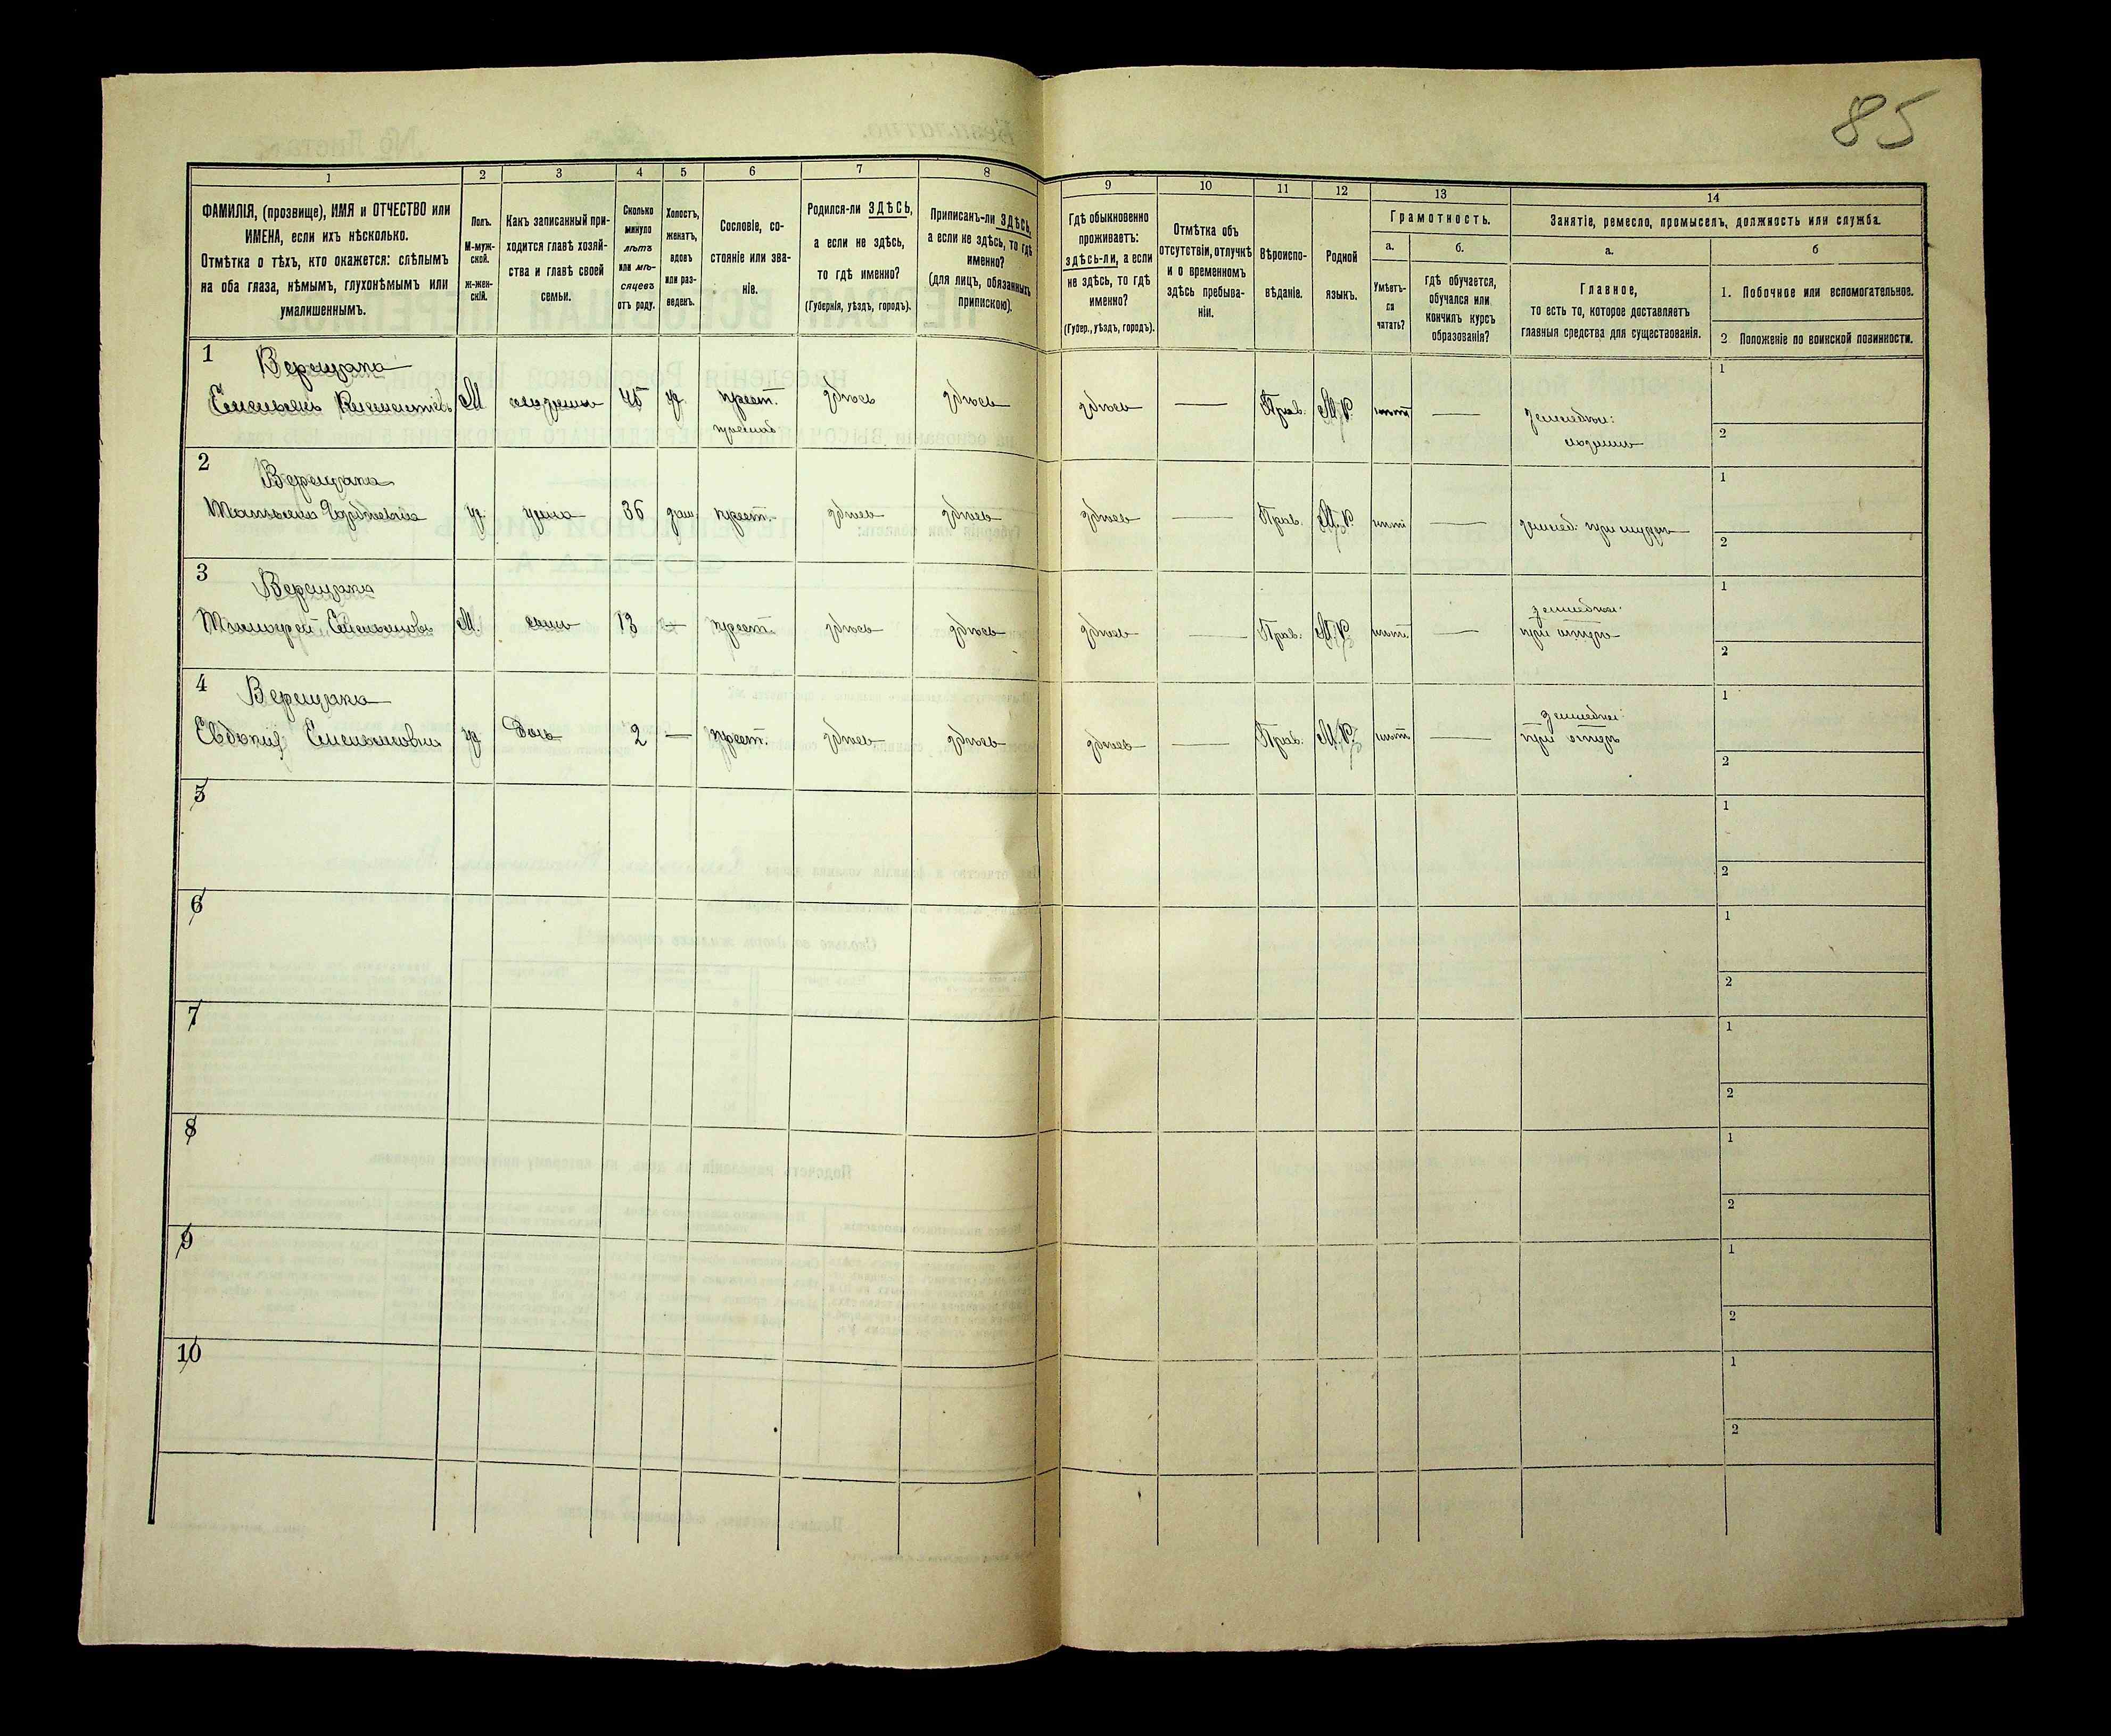 85
1
2
3
4
5
6
7
8
9
10
11
12
13
14
ФАМИЛІЯ, (прозвище), ИМЯ и ОТЧЕСТВО или
ИМЕНА, если ихъ нѣсколько.
Отмѣтка о тѣхъ, кто окажется: слѣпымъ
на оба глаза, нѣмымъ, глухонѣмымъ или
умалишеннымъ.
Полъ.
М-муж-
ской.
ж-жен-
скій.
Какъ записанный при-
ходится главѣ хозяй-
ства и главѣ своей
семьи.
Сколько
минуло
лѣтъ
или мѣ-
сяцевъ
отъ роду.
Холостъ,
женатъ,
вдовъ
или раз-
веденъ.
Сословіе, со-
стояніе или зва-
ніе.
Родился-ли ЗДѢСЬ,
а если не здѣсь,
то гдѣ именно?
(Губернія, уѣздъ, городъ).
Приписанъ-ли ЗДѢСЬ,
а если не здѣсь, то гдѣ
именно?
(для лицъ, обязанныхъ
припискою).
Гдѣ обыкновенно
проживаетъ:
здѣсь-ли, а если
не здѣсь, то гдѣ
именно?
(Губер., уѣздъ, городъ).
Отмѣтка объ
отсутствіи, отлучкѣ
и о временномъ
здѣсь пребыва-
ніи.
Вѣроиспо-
вѣданіе.
Родной
языкъ.
Грамотность.
а.
Умѣетъ-
ли
читать?
б.
гдѣ обучается,
обучался или
кончилъ курсъ
образованія?
Занятіе, ремесло, промыселъ, должность или служба.
а.
Главное,
то есть то, которое доставляетъ
главныя средства для существованія.
б
1. Побочное или вспомогательное.
2 Положеніе по воинской повинности.
1 Верещака
Емельянъ Климентіевъ М хозяинъ 45 ж. крест. здѣсь здѣсь здѣсь — Прав. М.Р. нѣтъ — земледѣл:
хозяинъ
1
2
2 Верещака
Татьяна ж. жена 36 зам. крест. здѣсь здѣсь здѣсь — Прав. М.Р. нѣтъ — земледѣл. при мужѣ
1
2
3 Верещака
Тимофей Емельяновъ М. сынъ 13 — крест. здѣсь здѣсь здѣсь — Прав. М.Р. нѣтъ — земледѣл.
при отцѣ
1
2
4 Верещака
Евдокия Емельяновна ж дочь 2 — крест. здѣсь здѣсь здѣсь — Прав. М.Р. нѣтъ — земледѣл.
при отцѣ
1
2
5
1
2
6
1
2
7
1
2
8
1
2
9
1
2
10
1
2